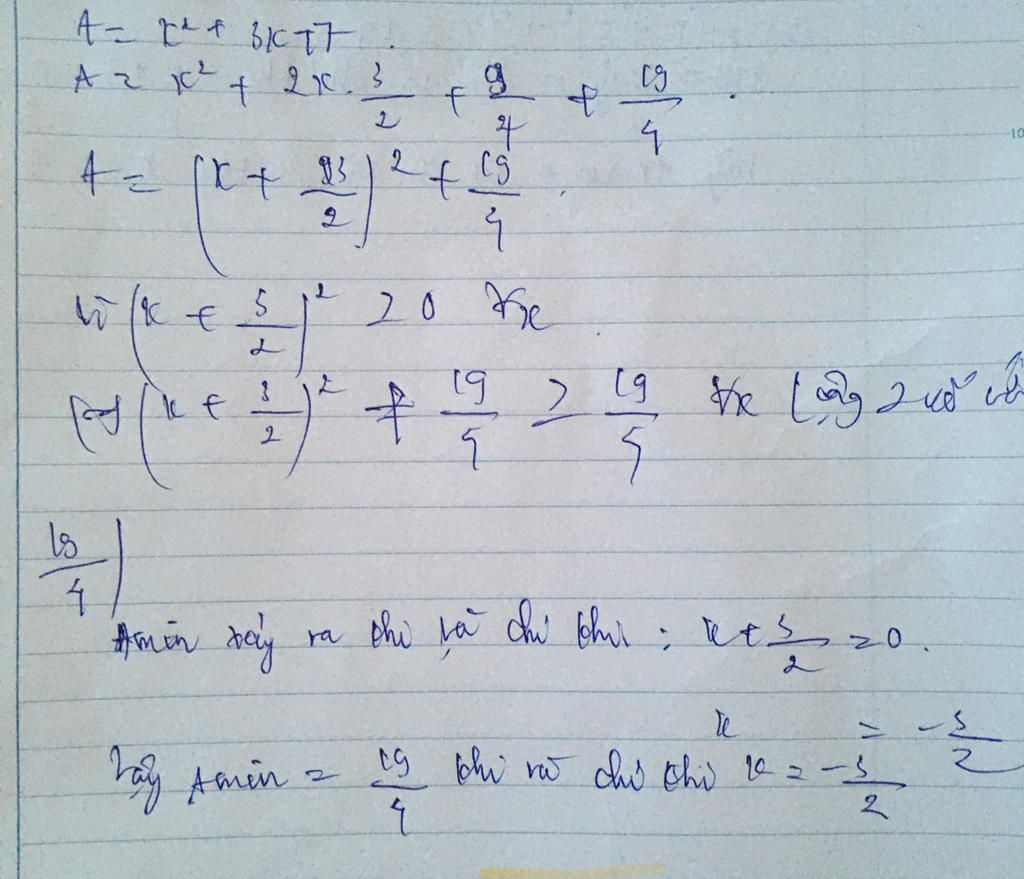 A = x² + 3x + 7.
A = x² + 2x . 3/2 + 9/4 + 19/4 .
A = (x + 3/2)² + 19/4 .
Vì (x + 3/2)² > 0 ∀x .
(x + 3/2)² + 19/4 ≥ 19/4 ∀x (cộng 2 vế với
19/4)
Amin xảy ra khi và chỉ khi : x + 3/2 = 0 .
x = -3/2
Vậy Amin = 19/4 khi và chỉ khi x = -3/2